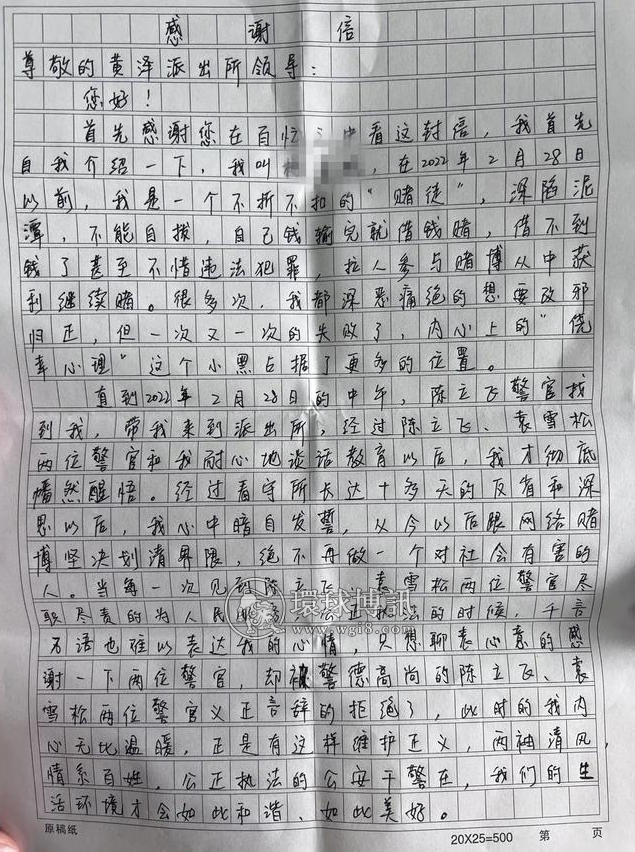 感谢信
尊敬的黄泽派出所领导：
您好！
首先感谢您在百忙之中看这封信，我首先
自我介绍一下，我叫 ，在2022年2月28日
以前，我是一个不折不扣的“赌徒”，深陷泥
潭，不能自拔，自己钱输完就借钱赌，借不到
钱了甚至不惜违法犯罪，拉人参与赌博从中获
利继续赌。很多次 我都深恶痛绝的想要改邪
归正，但一次又一次的失败了，内心上的“侥
幸心理”这个小黑占据了更多的位置。
直到2022年2月28日的中午，陈立飞警官找
到我，带我来到派出所，经过陈立飞、袁雪松
两位警官和我耐心地谈话教育以后，我才彻底
幡然醒悟。经过看守所长达十多天的反省和深
思以后，我心中暗自发誓，从今以后跟网络赌
博坚决划清界限，绝不再做一个对社会有害的
人。当每一次见到陈立飞、袁雪松两位警官尽
职尽责的为人民服务，公正执法的时候，千言
万语也难以表达我的心情，只想聊表心意的感
谢一下两位警官，却被警德高尚的陈立飞、袁
雪松两位警官义正言辞的拒绝了，此时的我内
心无比温暖，正是有这样维护正义，两袖清风，
情系百姓，公正执法的公安干警在，我们的生
活环境才会如此和谐、如此美好。
環球博訊
www.wgi8.com
原稿纸
20X25=500 第 页